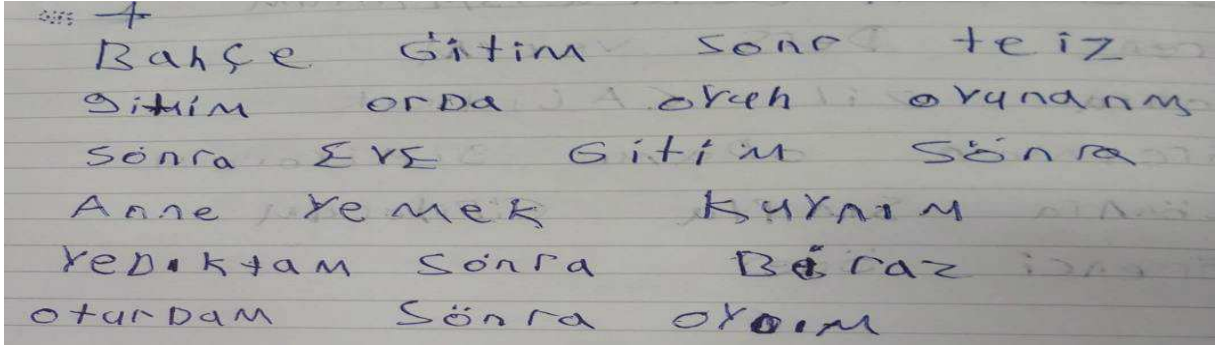 Bahçe Gitim sonr teiz
gitim orDa oyun oyundnm
sönra EVE Gitim Sönra
Anne yemek Kuynım
yeDıktam Sönra Bíraz
oturDam Sönra oyoım